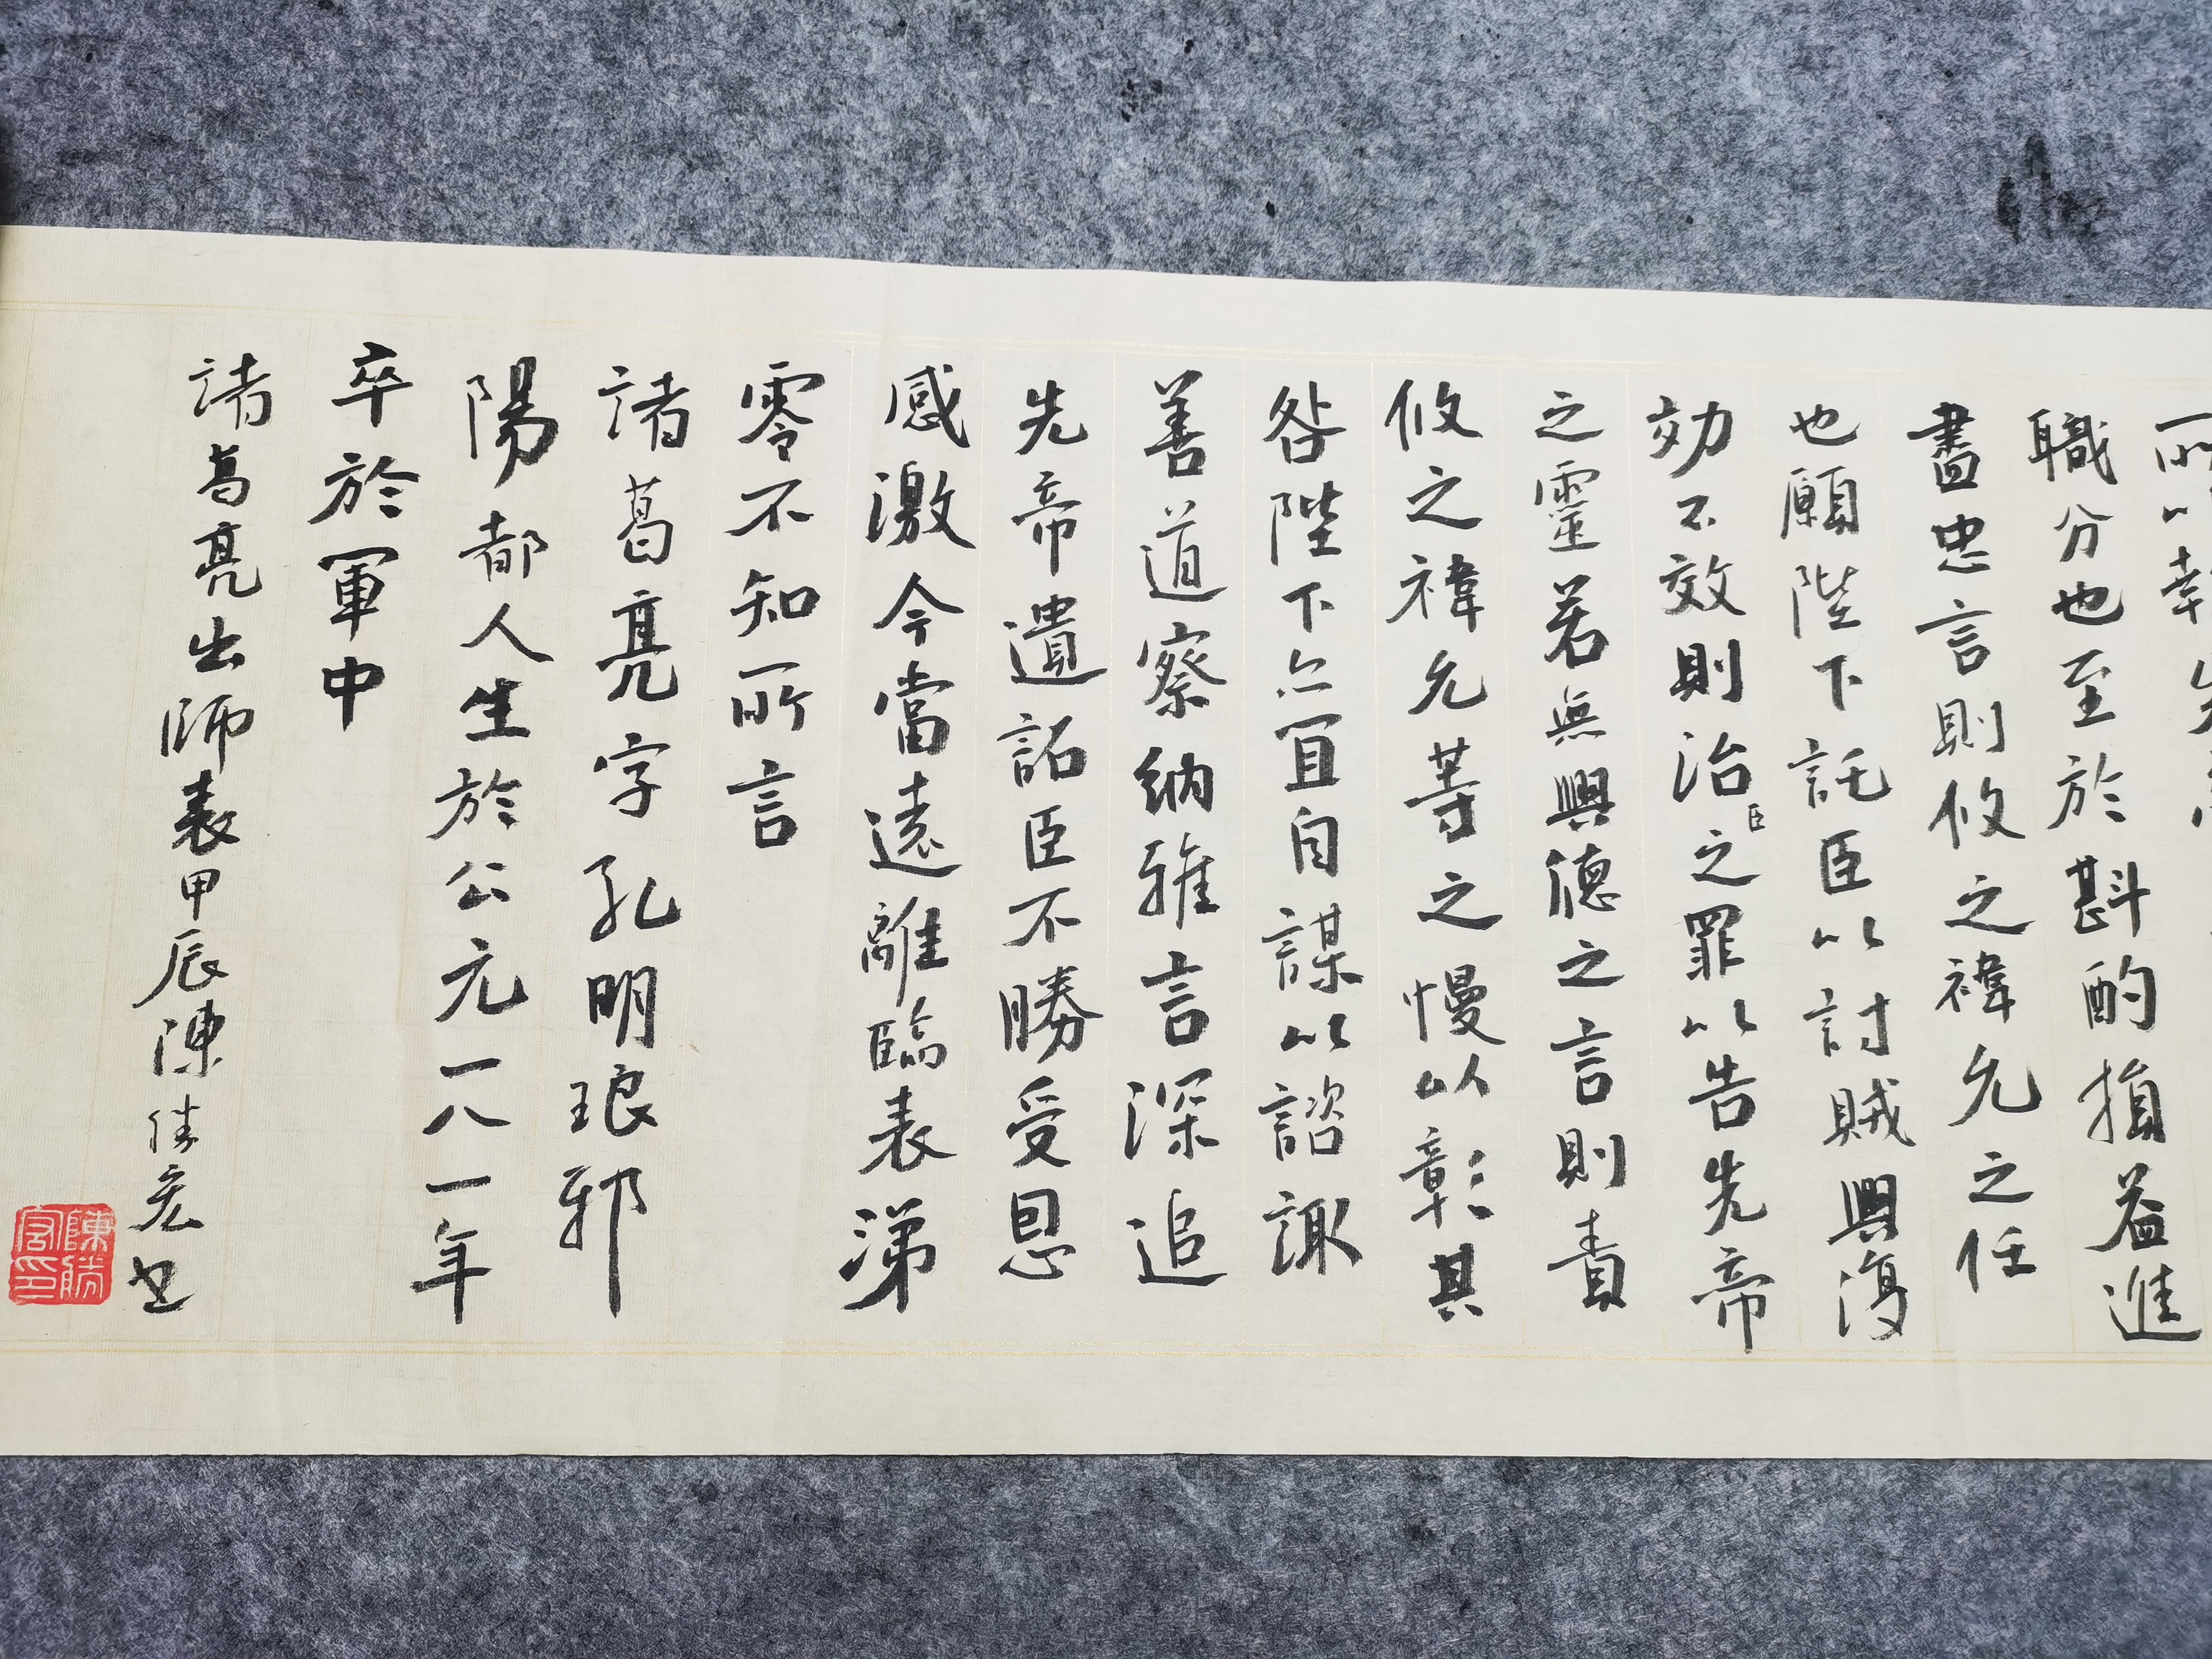 所以報先
職分也至於斟酌損益進
盡忠言則攸之禕允之任
也願陛下託臣以討賊興復
効不效則治臣之罪以告先帝
之靈若無興德之言則責
攸之禕允等之慢以彰其
咎陛下亦宜自謀以諮諏
善道察納雅言深追
先帝遺詔臣不勝受恩
感激今當遠離臨表涕
零不知所言
諸葛亮字孔明琅邪
陽都人生於公元一八一年
卒於軍中
諸葛亮出師表甲辰陳勝宏书
陳勝宏印